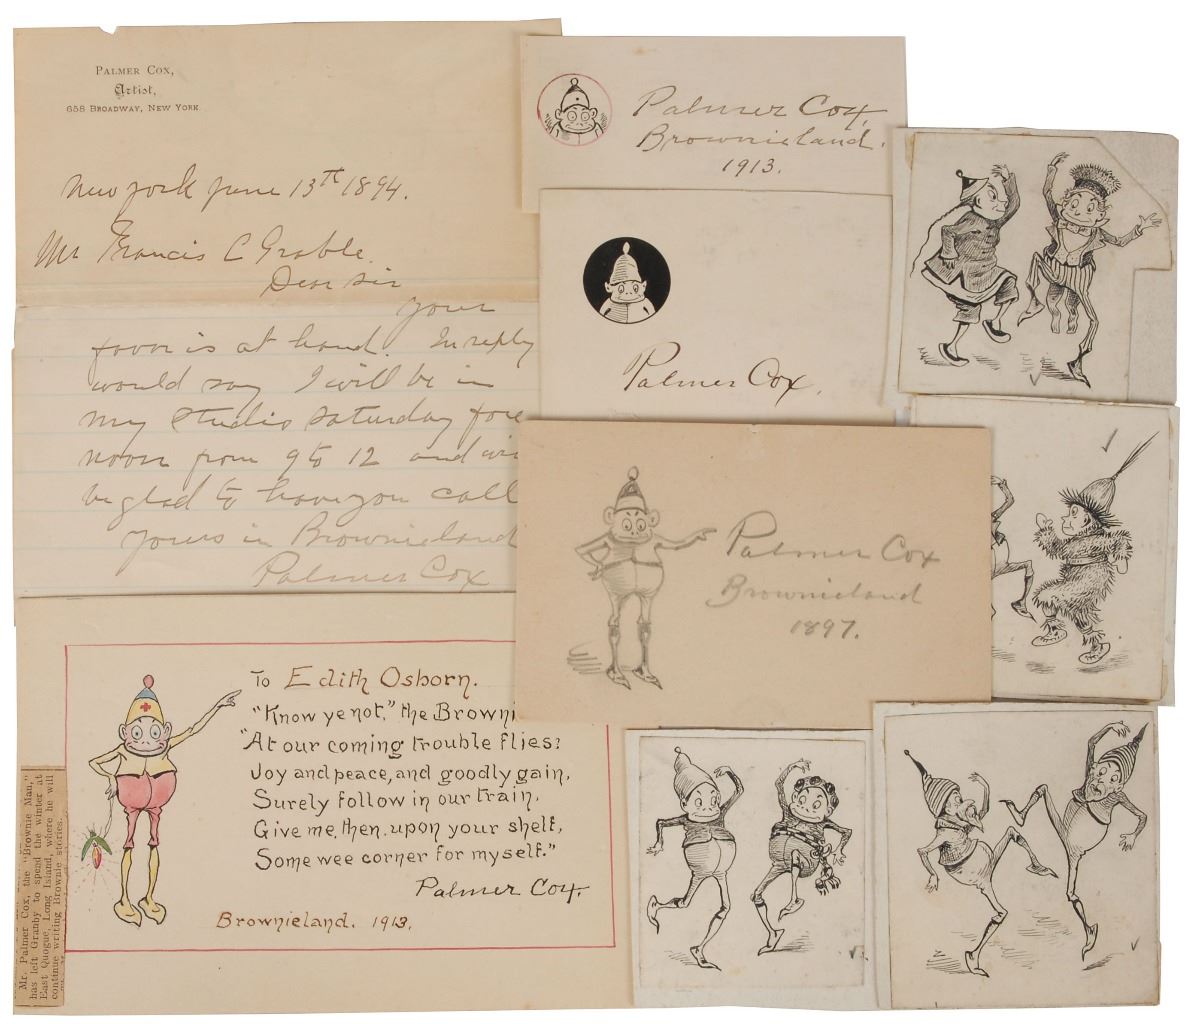 PALMER COX,
Artist,
658 BROADWAY, NEW YORK.
New york June 13th 1894.
Mr Francis C Grable.
Dear Sir
your
favor is at hand. In reply
would say I will be in
my studio Saturday fore
noon from 9 to 12 and wi
be glad to have you call
yours in Brownieland
Palmer Cox
Palmer Cox,
Brownieland.
1913.
Palmer Cox,
Palmer Cox
Brownieland
1897.
To Edith Osborn.
"Know ye not," the Browni
"At our coming trouble flies?
Joy and peace, and goodly gain,
Surely follow in our train.
Give me, then, upon your shelf,
Some wee corner for myself."
Palmer Cox,
Brownieland. 1913.
Mr. Palmer Cox, the "Brownie Man,"
has left Granby to spend the winter at
East Quogue, Long Island, where he will
continue writing Brownie stories.